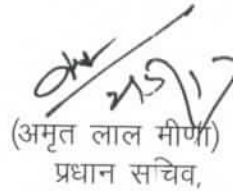 (अमृत लाल मीणा)
प्रधान सचिव,